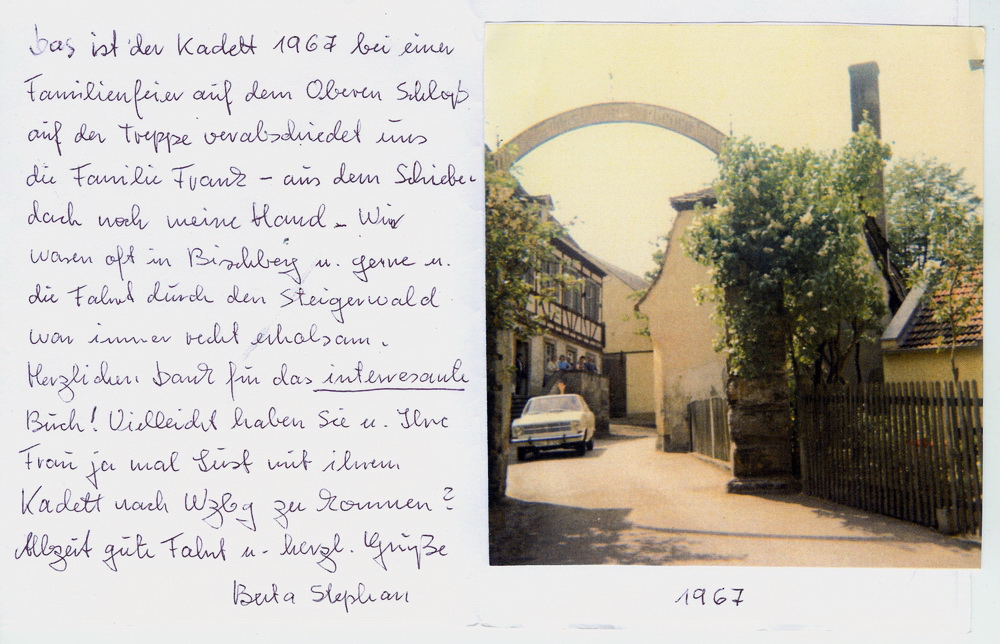 Das ist der Kadett 1967 bei einer
Familienfeier auf dem Oberen Schloß
auf der Treppe verabschiedet uns
die Familie Frank – aus dem Schiebe-
dach noch meine Hand – Wir
waren oft in Bischberg u. gerne u.
die Fahrt durch den Steigerwald
war immer recht erholsam.
Herzlichen Dank für das interressante
Buch! Vielleicht haben Sie u. Ihre
Frau ja mal Lust mit ihrem
Kadett nach Wzbg zu kommen?
Allzeit gute Fahrt u. herzl. Grüße
Berta Stephan
1967